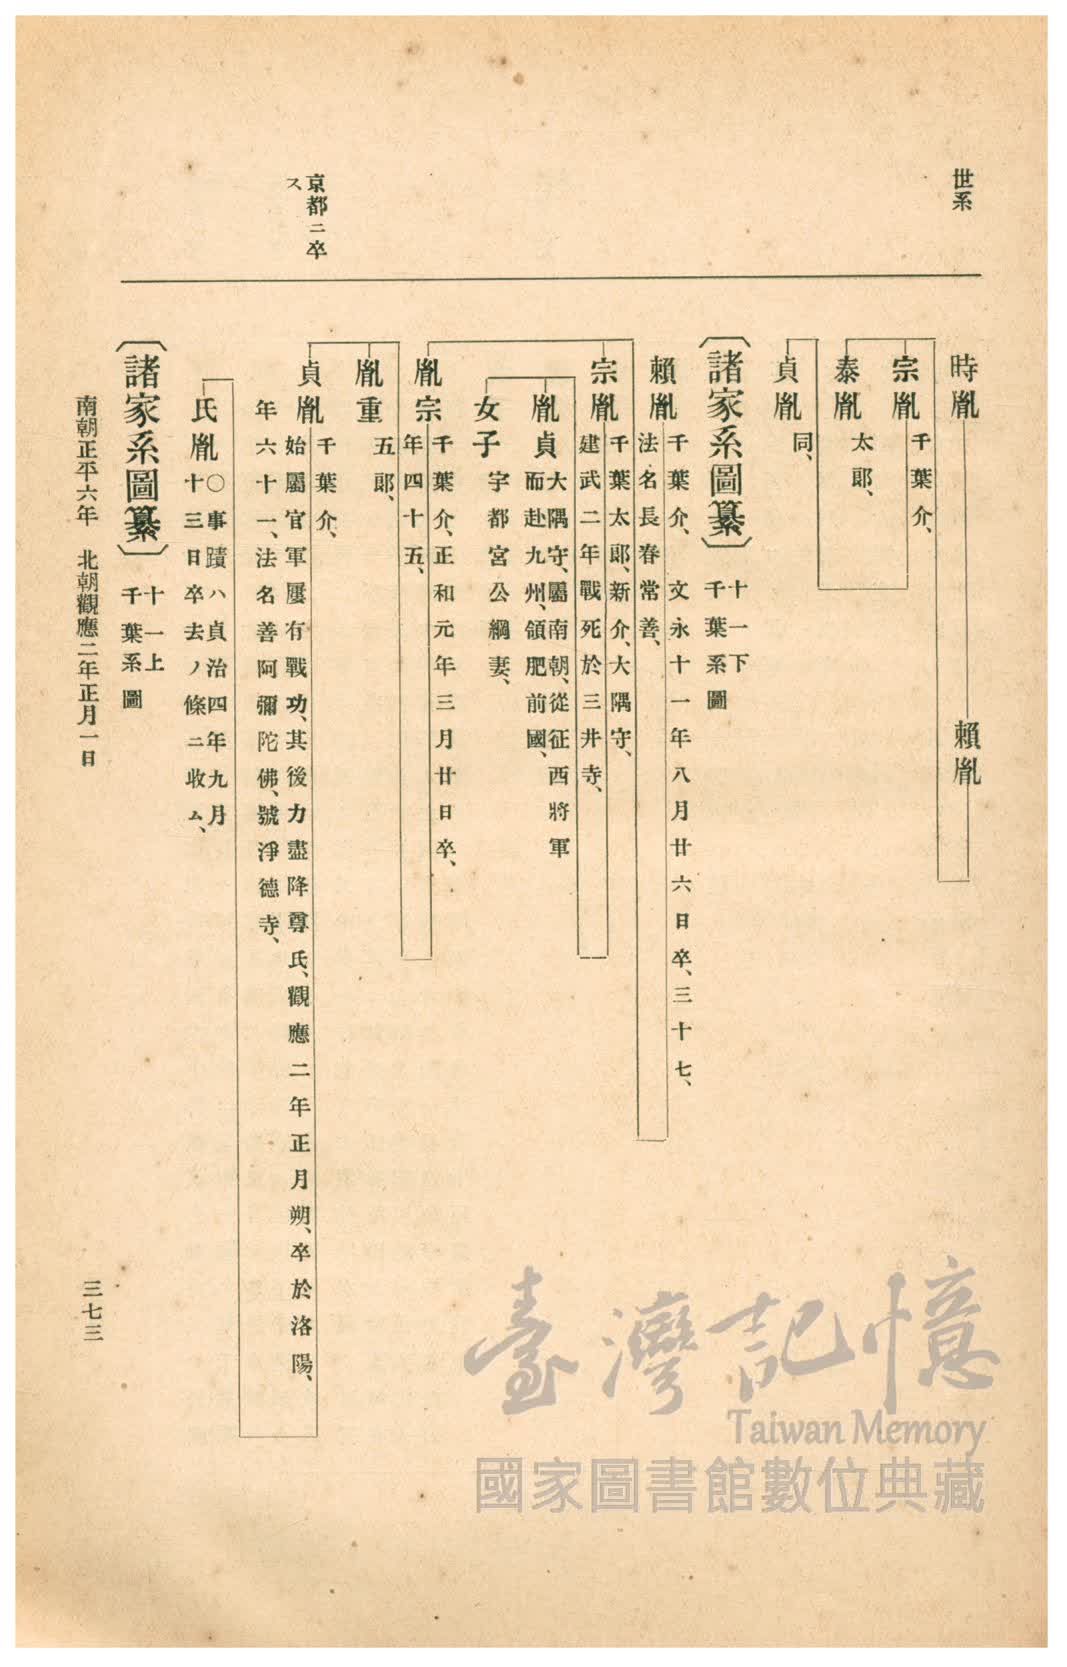 世系
京都ニ卒
ス
時胤
賴胤
宗胤
千葉介、
泰胤
太郎、
貞胤
同、
〔諸家系圖纂〕
十一下
千葉系圖
賴胤
千葉介、文永十一年八月廿六日卒、三十七、
法名長春常善、
宗胤
千葉太郎、新介、大隅守、
建武二年戰死於三井寺、
胤貞
大隅守、屬南朝、從征西將軍
而赴九州、領肥前國、
女子
宇都宮公綱妻、
胤宗
千葉介、正和元年三月廿日卒、
年四十五、
胤重
五郎、
貞胤
千葉介、
始屬官軍屢有戰功、其後力盡降尊氏、觀應二年正月朔、卒於洛陽、
年六十一、法名善阿彌陀佛、號淨德寺、
氏胤
〇事蹟ハ貞治四年九月
十三日卒去ノ條ニ收ム、
〔諸家系圖纂〕
十一上
千葉系圖
南朝正平六年 北朝觀應二年正月一日
三七三
臺灣記憶
Taiwan Memory
國家圖書館數位典藏